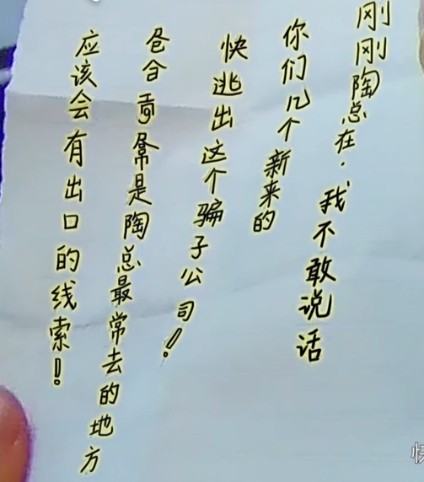 刚刚陶总在.我不敢说话
你们几个新来的
快逃出这个骗子公司!
是陶总最常去的地方
应该会有出口的线索!